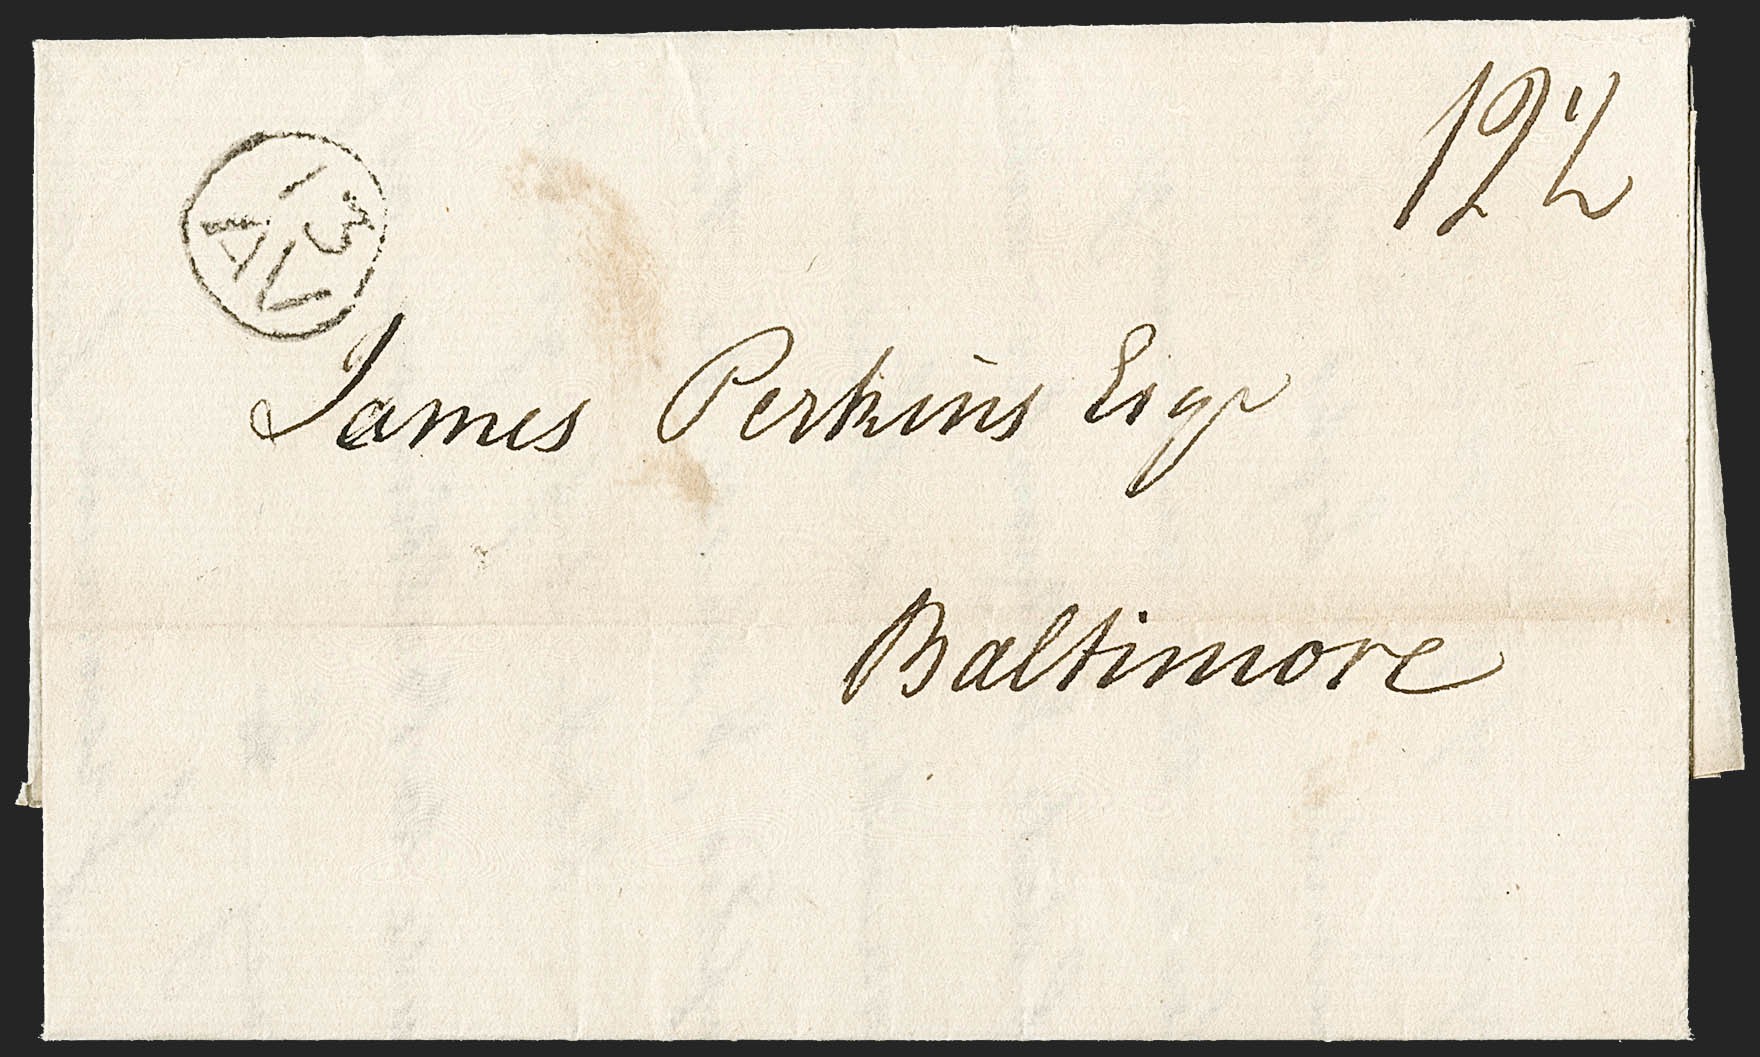 13
AV
12½
James Perkins Esqr
Baltimore